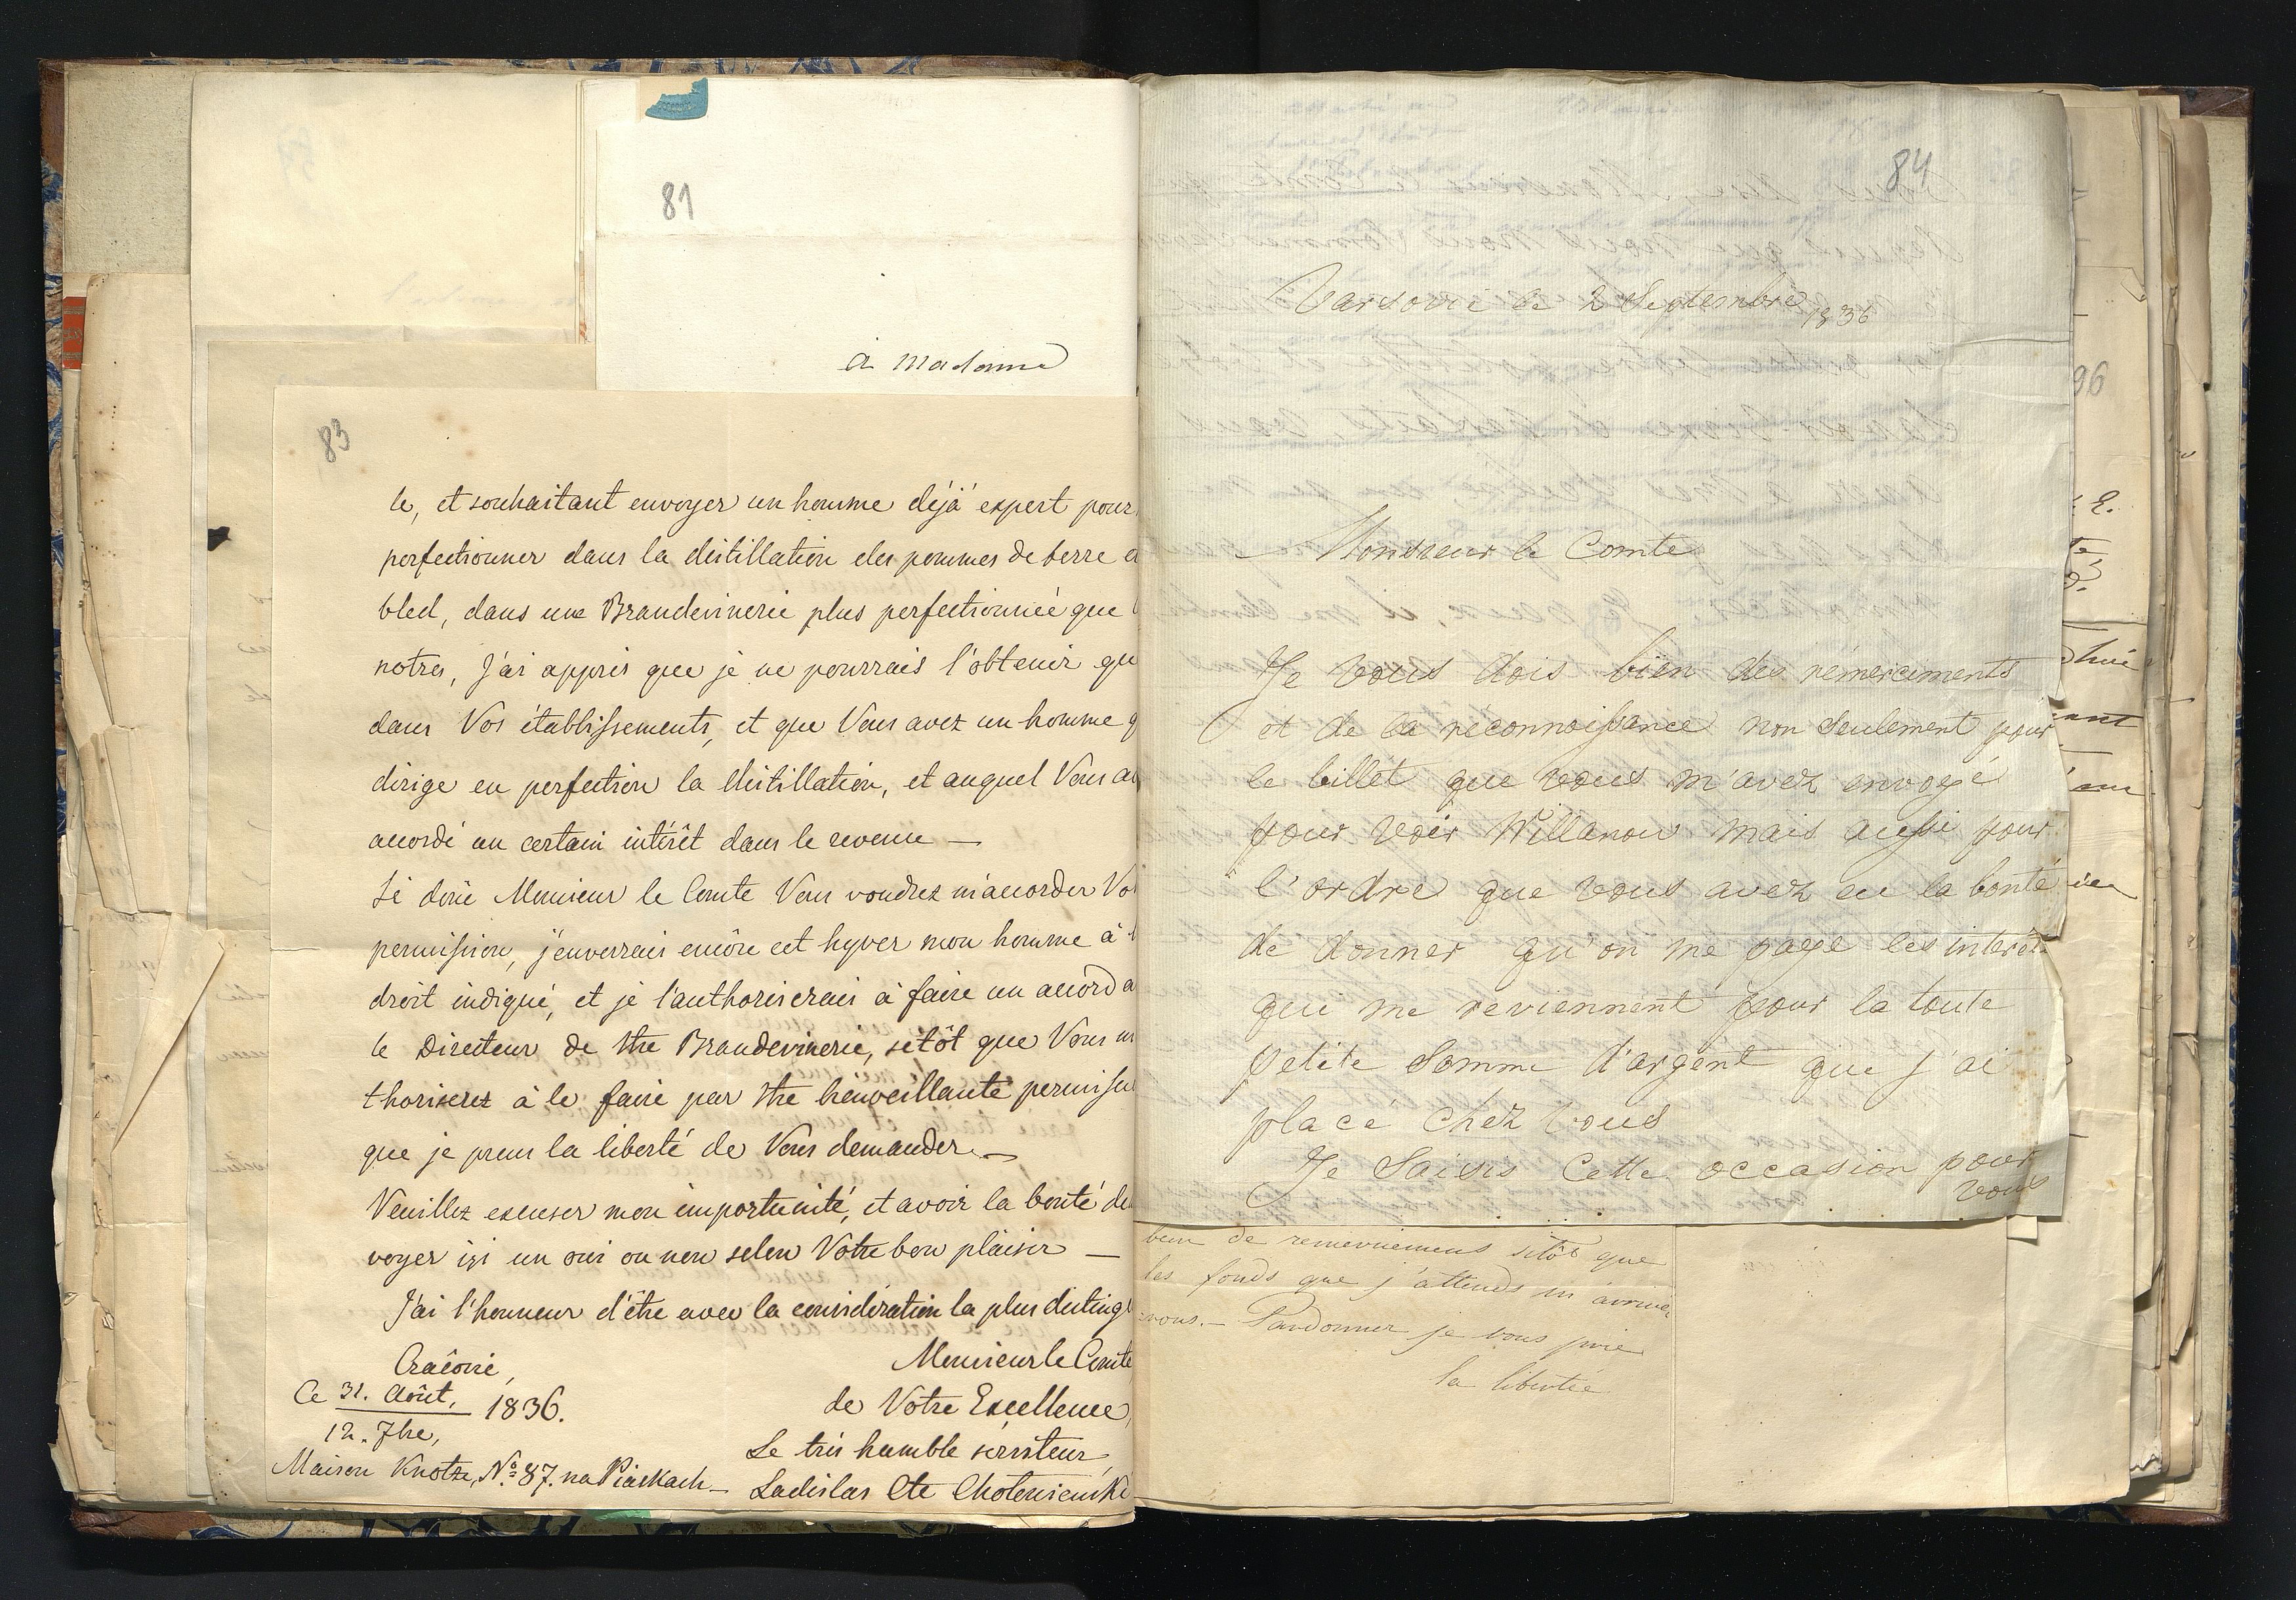 81
à Madame
83
le, et souhaitant envoyer un homme déjà expert pour
perfectionner dans la distillation des pommes de terre e
bled, dans une Brandevinerie plus perfectionnée que
notres, j'ai appris que je ne pourrais l'obtenir qu
dans Vos établissements, et que Vous avez un homme q
dirige en perfection la distillation, et auquel Vous a
accordé un certain intérêt dans le revenu —
Si donc Monsieur le Comte Vous voudrez m'accorder Vo
permission, j'enverrais encôre cet hyver mon homme à l
droit indiqué, et je l'authoriserais à faire un accord a
le Directeur de Vtre Brandevinerie, sitôt que Vous m
thoriserez à le faire par Vtre bienveillante permissi
que je prens la liberté de Vous demander. —
Veuillez excuser mon importunité, et avoir la bonté de
voyer içi un oui ou non selon Votre bon plaisir —
J'ai l'honneur d'être avec la considération la plus disting
Monsieur le Comte
de Votre Excellence,
Le très humble serviteur,
Ladislas Cte
Cracovie,
Ce 31. Août, 1836.
12. 7bre,
Maison Knotze, No 87. na Piaskach —
84
Varsovie le 2 Septembre 1836
Monsieur le Comte
Je vous dois bien des rémerciments
et de la réconnoissance non seulement pour
le billet que vous m'avez envoyé
pour voir Willanow mais aussi pour
l'ordre que vous avez eu la bonté
de donner qu'on me paye les interêts
qui me reviennent pour la toute
petite Somme d'argent que j'ai
placé chez vous
Je Saisis Cette occasion pour
vous
de remerciemens sitôt que
les fonds que j'attends m'arrive
nous. — Pardonner je vous prie
la libertée
96